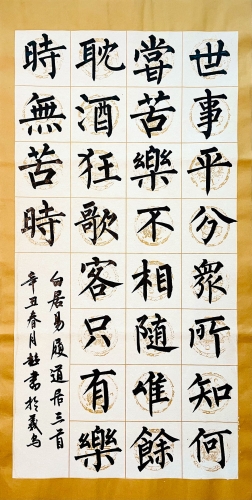 世事平分衆所知何
嘗苦樂不相隨唯餘
耽酒狂歌客只有樂
時無苦時
白居易履道居三首
辛丑春月書於義烏